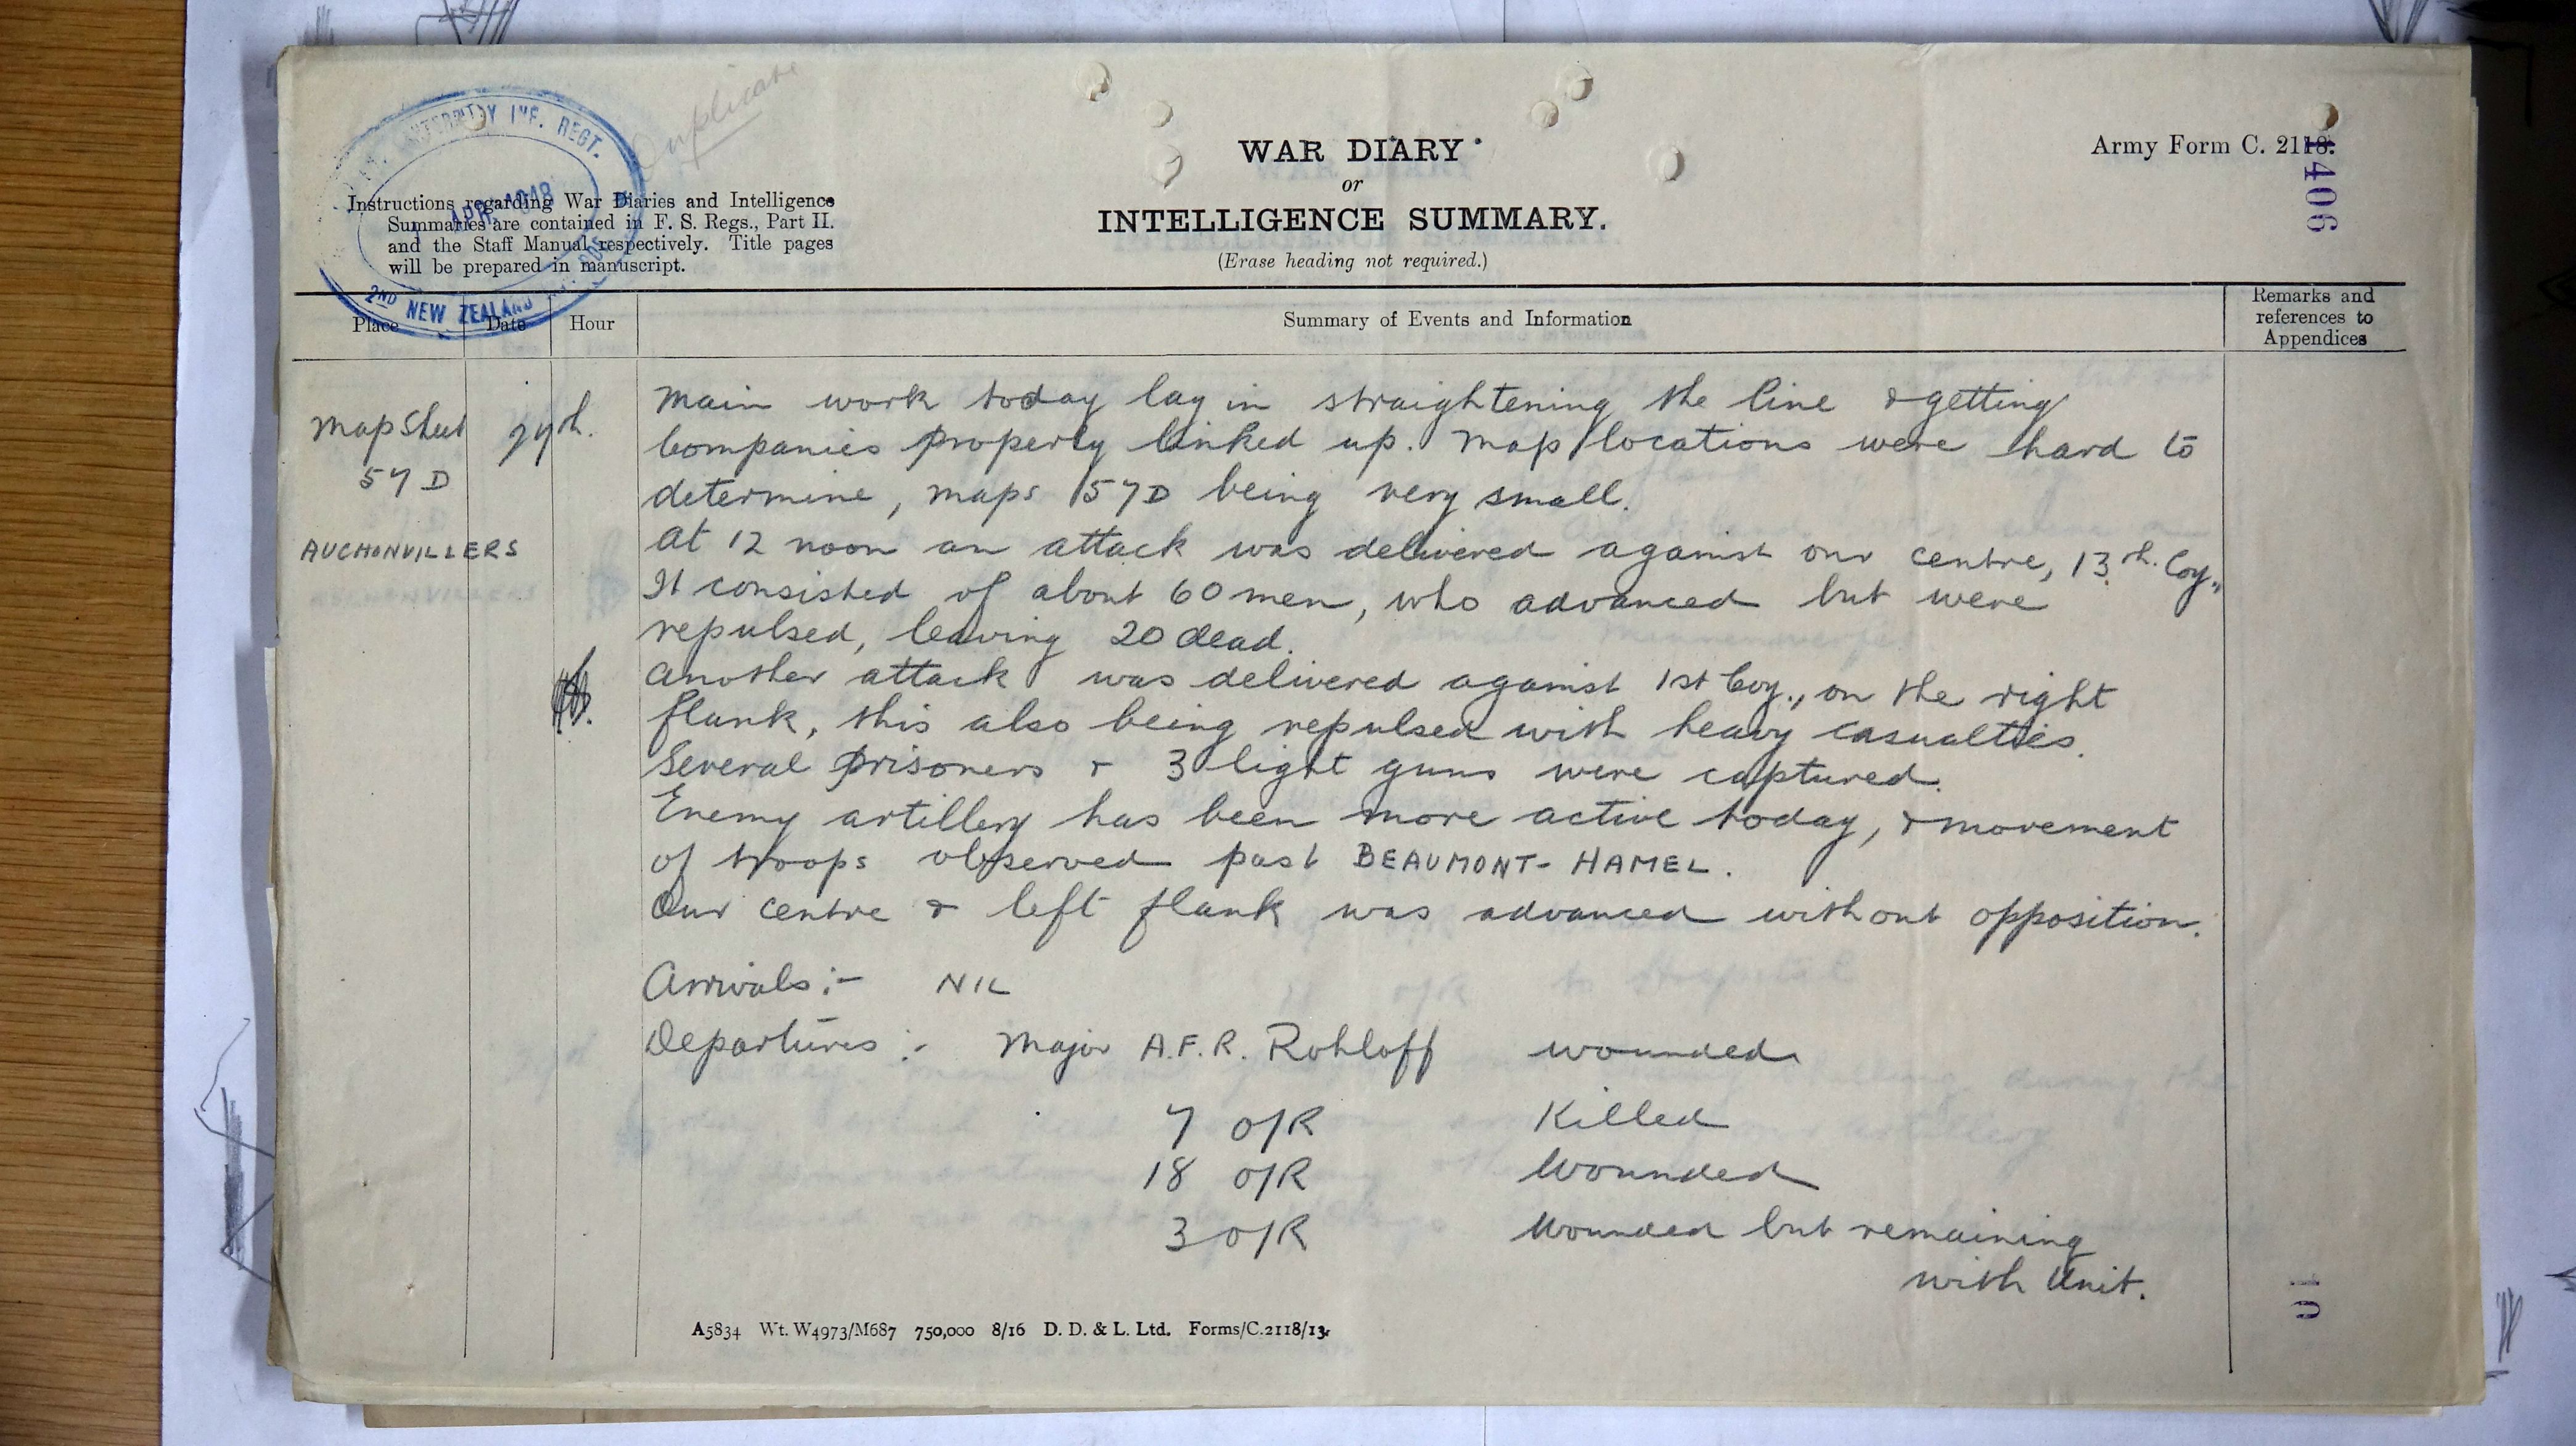 Duplicate
INF. REGT.
APR. 1918
2ND NEW ZEALAND
Army Form C. 2118.
1406
WAR DIARY
or
INTELLIGENCE SUMMARY.
(Erase heading not required.)
Instructions regarding War Diaries and Intelligence
Summaries are contained in F. S. Regs., Part II.
and the Staff Manual respectively. Title pages
will be prepared in manuscript.
Place Date Hour Summary of Events and Information Remarks and
references to
Appendices
Map Sheet
57 D
AUCHONVILLERS
27th.
Main work today lay in straightening the line & getting
Companies properly linked up. Map locations were hard to
determine, maps 57D being very small.
At 12 noon an attack was delivered against our centre, 13th. Coy.,
It consisted of about 60 men, who advanced but were
repulsed, leaving 20 dead.
Another attack was delivered against 1st Coy., on the right
flank, this also being repulsed with heavy casualties.
Several prisoners & 3 light guns were captured.
Enemy artillery has been more active today, & movement
of troops observed past BEAUMONT-HAMEL.
Our centre & left flank was advanced without opposition.
Arrivals:- NIL
Departures:- Major A.F.R. Rohloff wounded
7 O/R Killed
18 O/R Wounded
3 O/R Wounded but remaining
with Unit.
10
A5834 Wt. W4973/M687 750,000 8/16 D. D. & L. Ltd. Forms/C.2118/13.